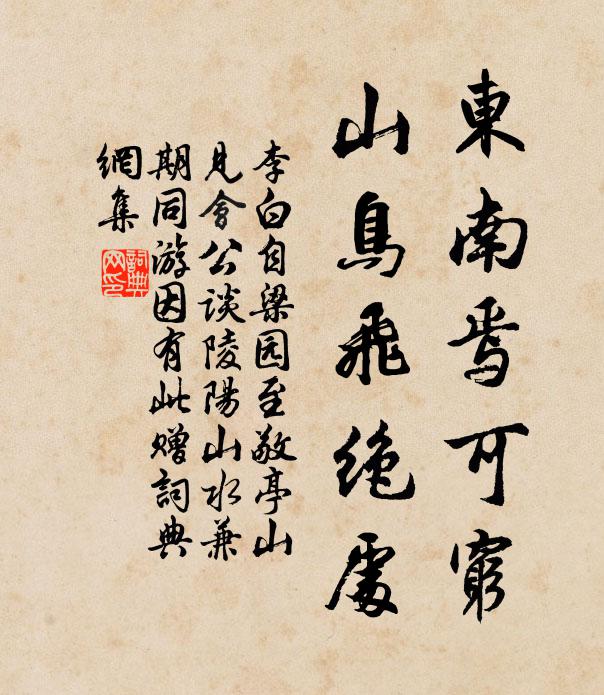 東南焉可窮
山鳥飛絶處
李白自梁园至敬亭山
見會公談陵陽山水兼
期同游因有此赠詞典
網集
詞典网印